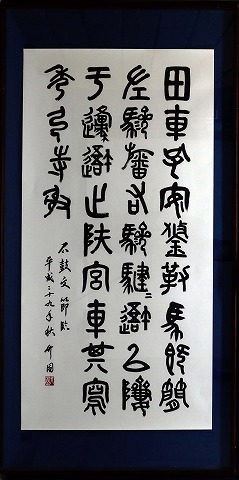 田車孔安鋚勒馬既簡
左驂旛右驂騝〻吾以隮
于邍吾止陕宮車其寫
秀弓寺射
石鼓文節臨
平成二十九年秋